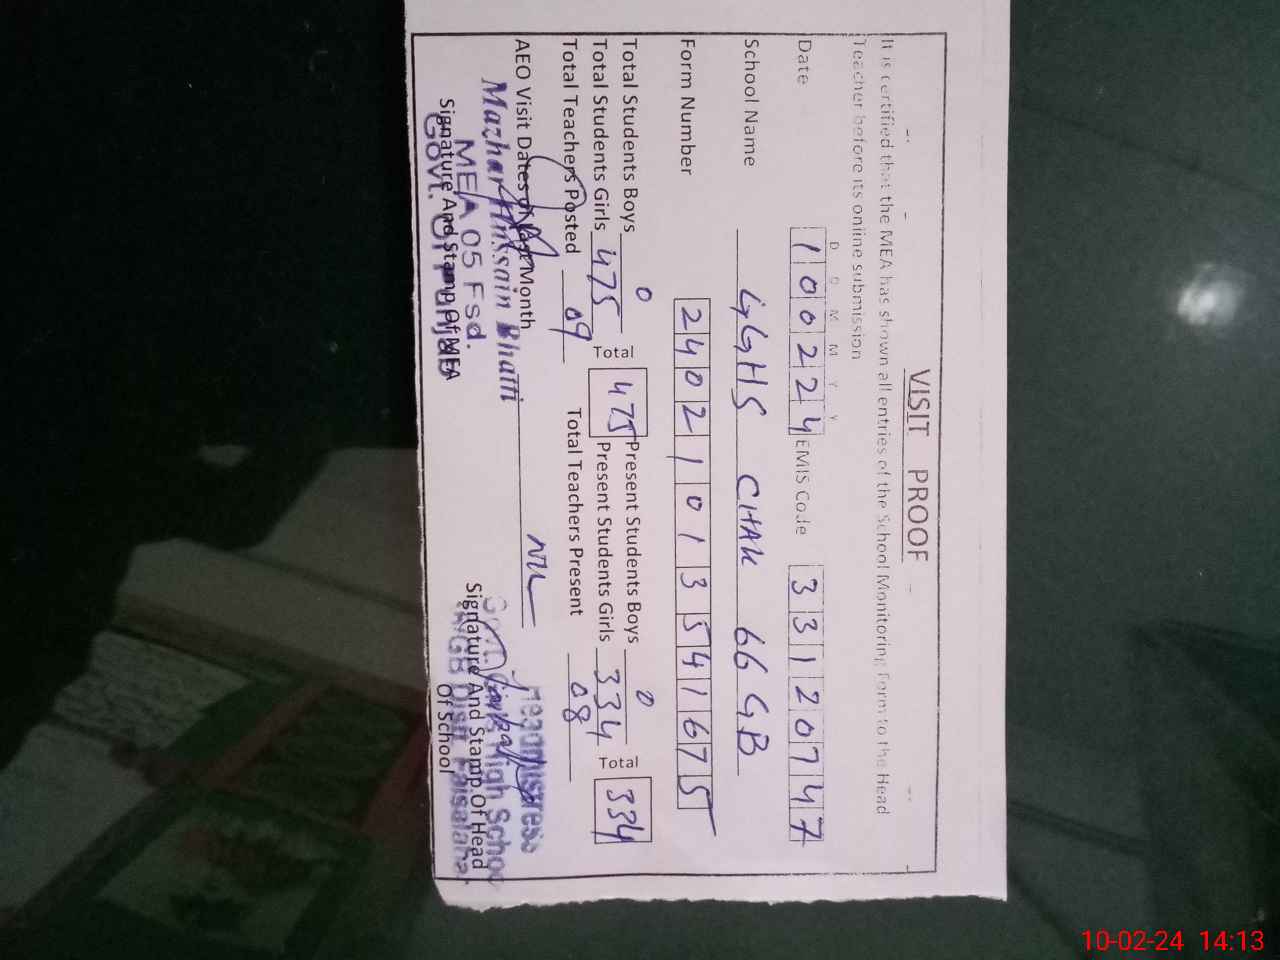 VISIT PROOF
It is certified that the MEA has shown all entries of the School Monitoring Form to the Head
Teacher before its online submission
D D M M Y Y
Date 100224 EMIS Code 33120747
School Name GGHS CHAK 66 GB
Form Number 2402101354 1675
Total Students Boys 0 Present Students Boys 0
Total Students Girls 475 Total 475 Present Students Girls 334 Total 334
Total Teachers Posted 09 Total Teachers Present 08
AEO Visit Dates of Last Month Nil
Mazhar Hussain Bhatti
MEA 05 Fsd.
Govt. Of Punjab
Signature And Stamp Of MEA
Headmistress
Govt. Girls High School
66 GB Distt Faisalabad
Signature And Stamp Of Head
Of School
10-02-24 14:13